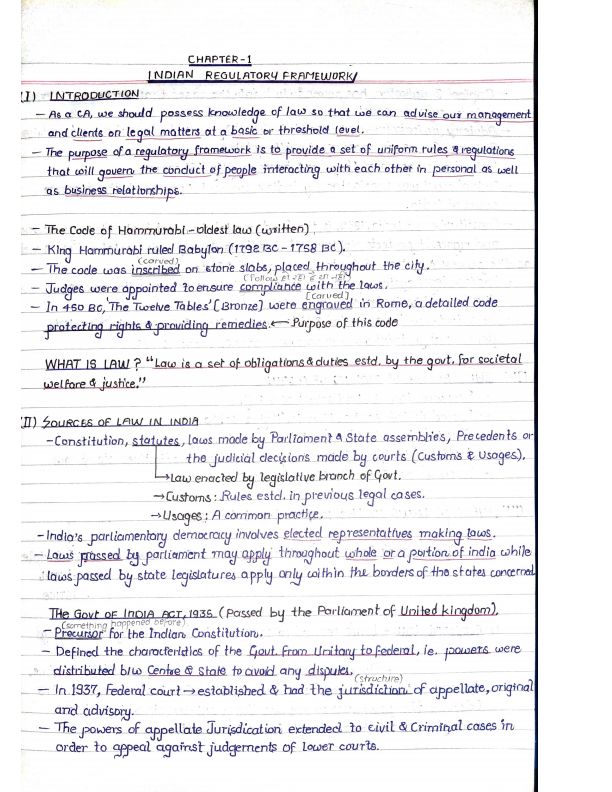 CHAPTER-1
INDIAN REGULATORY FRAMEWORK
(I) INTRODUCTION
- As a CA, we should possess knowledge of law so that we can advise our management
and clients on legal matters at a basic or threshold level.
- The purpose of a regulatory framework is to provide a set of uniform rules & regulations
that will govern the conduct of people interacting with each other in personal as well
as business relationships.
- The Code of Hammurabi - oldest law (written)
- King Hammurabi ruled Babylon (1792 BC - 1758 BC).
(carved)
- The code was inscribed on stone slabs, placed throughout the city.
- Judges were appointed to ensure compliance with the laws.
(carved)
- In 450 BC, 'The Twelve Tables' [Bronze] were engraved in Rome, a detailed code
protecting rights & providing remedies. ← Purpose of this code
WHAT IS LAW? "Law is a set of obligations & duties estd. by the govt. for societal
welfare & justice."
(II) SOURCES OF LAW IN INDIA
- Constitution, statutes, laws made by Parliament & State assemblies, Precedents or
the judicial decisions made by courts (Customs & Usages).
→ Law enacted by legislative branch of Govt.
→ Customs: Rules estd. in previous legal cases.
→ Usages: A common practice.
- India's parliamentary democracy involves elected representatives making laws.
- Laws passed by parliament may apply throughout whole or a portion of india while
laws passed by state legislatures apply only within the borders of the states concerned
THE GOVT OF INDIA ACT, 1935 (Passed by the Parliament of United kingdom).
(something happened before)
- Precursor for the Indian Constitution.
- Defined the characteristics of the Govt. from Unitary to federal, ie. powers were
distributed b/w Centre & State to avoid any disputes.
(structure)
- In 1937, Federal court → established & had the jurisdiction of appellate, original
and advisory.
- The powers of appellate Jurisdication extended to civil & Criminal cases in
order to appeal against judgements of lower courts.